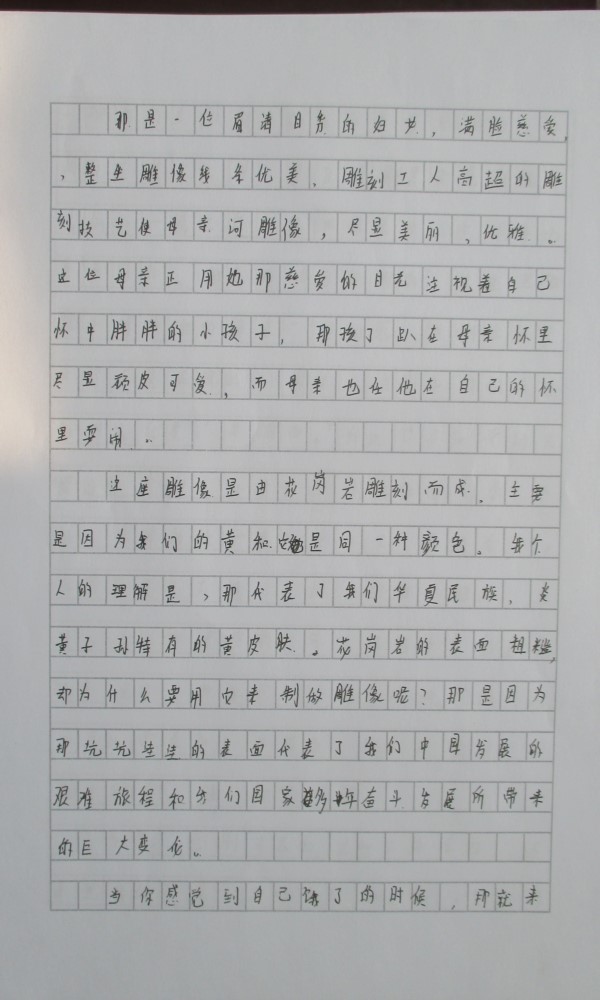 那是一位眉清目秀的妇女，满脸慈爱，
，整坐雕像线条优美、雕刻工人高超的雕
刻技艺使母亲河雕像，尽显美丽、优雅。
这位母亲正用她那慈爱的目光注视着自己
怀中胖胖的小孩子，那孩子趴在母亲怀里
尽显顽皮可爱，而母亲也任他在自己的怀
里耍闹。
这座雕像是由花岗岩雕刻而成。主要
是因为我们的黄和它是同一种颜色。每个
人的理解是，那代表了我们华夏民族、炎
黄子孙特有的黄皮肤。花岗岩的表面粗糙，
却为什么要用它来制做雕像呢？那是因为
那坑坑洼洼的表面代表了我们中国发展的
艰难旅程和我们国家多年奋斗发展所带来
的巨大变化。
当你感觉到自己饿了的时候，那就来